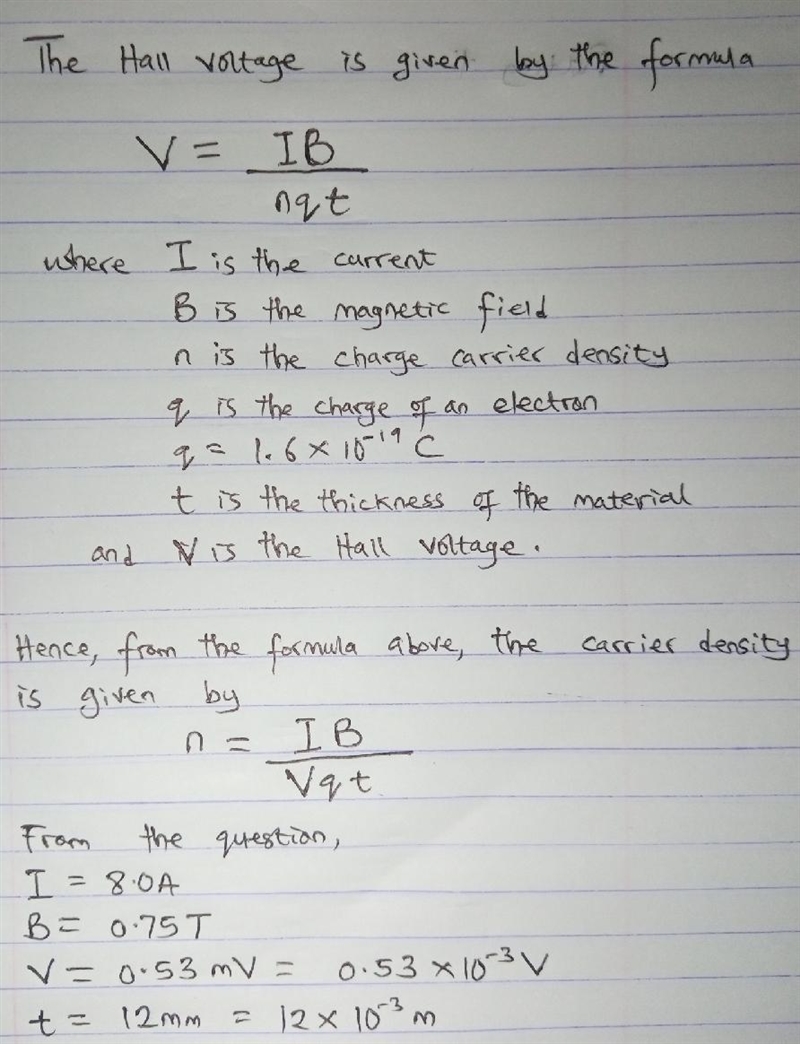 The Hall voltage is given by the formula
V = IB / nqt
where I is the current
B is the magnetic field
n is the charge carrier density
q is the charge of an electron
q = 1.6 × 10⁻¹⁹ C
t is the thickness of the material
and V is the Hall voltage.
Hence, from the formula above, the carrier density
is given by
n = IB / Vqt
From the question,
I = 8.0A
B = 0.75T
V = 0.53 mV = 0.53 × 10⁻³ V
t = 12mm = 12 × 10⁻³ m